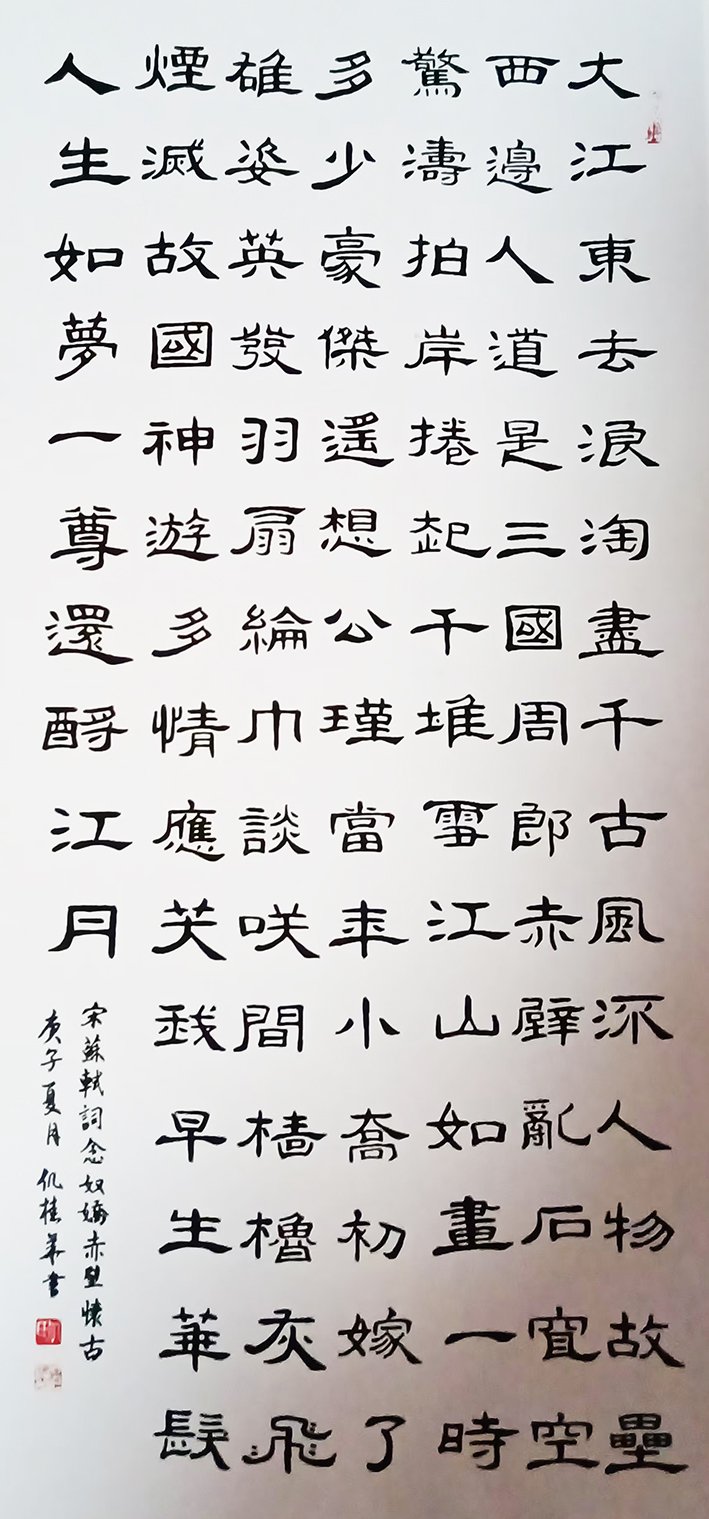 大江東去浪淘盡千古風流人物故壘
西邊人道是三國周郎赤壁亂石穿空
驚濤拍岸捲起千堆雪江山如畫一時
多少豪傑遙想公瑾當年小喬初嫁了
雄姿英發羽扇綸巾談咲間檣櫓灰飛
煙滅故國神遊多情應笑我早生華髮
人生如夢一尊還酹江月
宋蘇軾詞念奴嬌赤壁懷古
庚子夏月桂華書